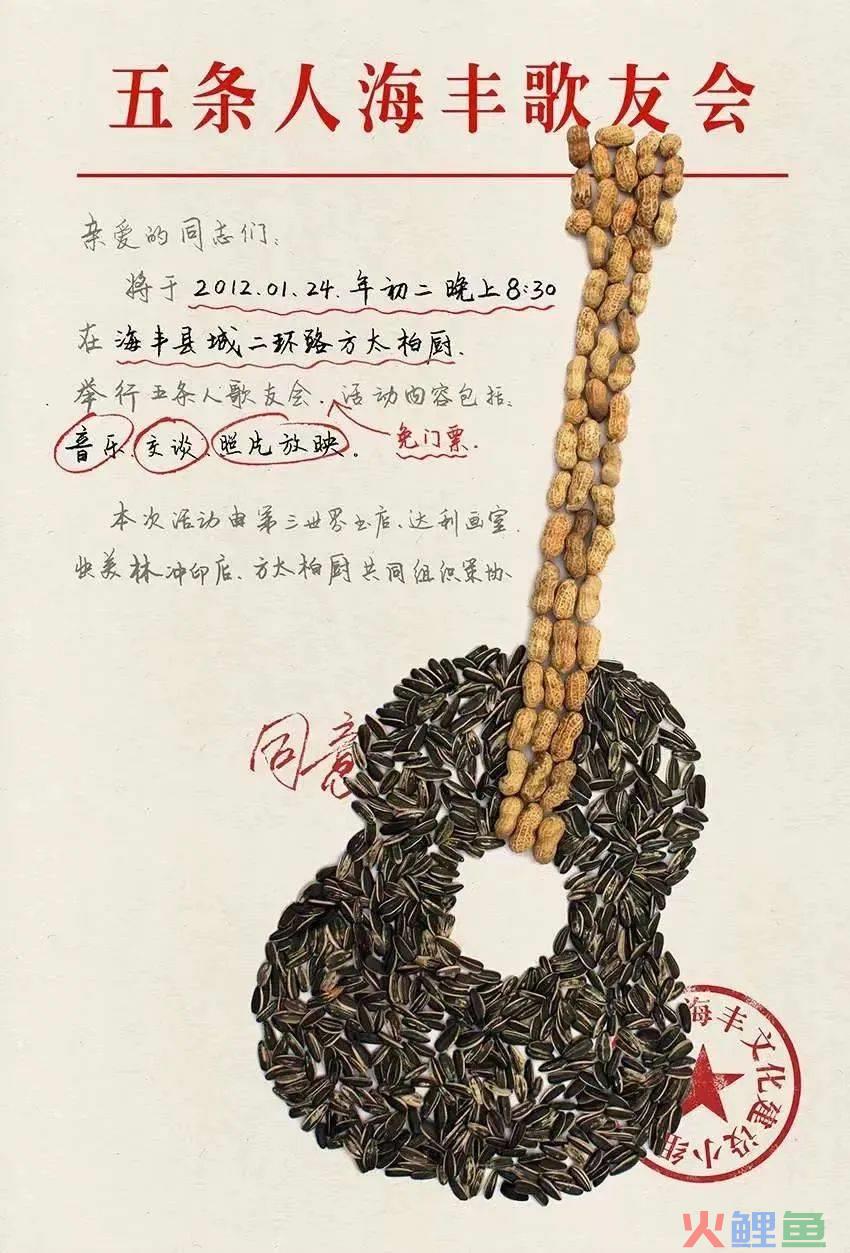 五条人海丰歌友会
亲爱的同志们：
将于 2012.01.24.年初二晚上8:30
在 海丰县城二环路方太柏厨.
举行五条人歌友会.活动内容包括:
音乐.交谈.照片放映。
免门票.
本次活动由第三世界书店.达利画室.
快美林冲印店.方太柏厨共同组织策协.
同意
海丰文化建设小组
火鲤鱼